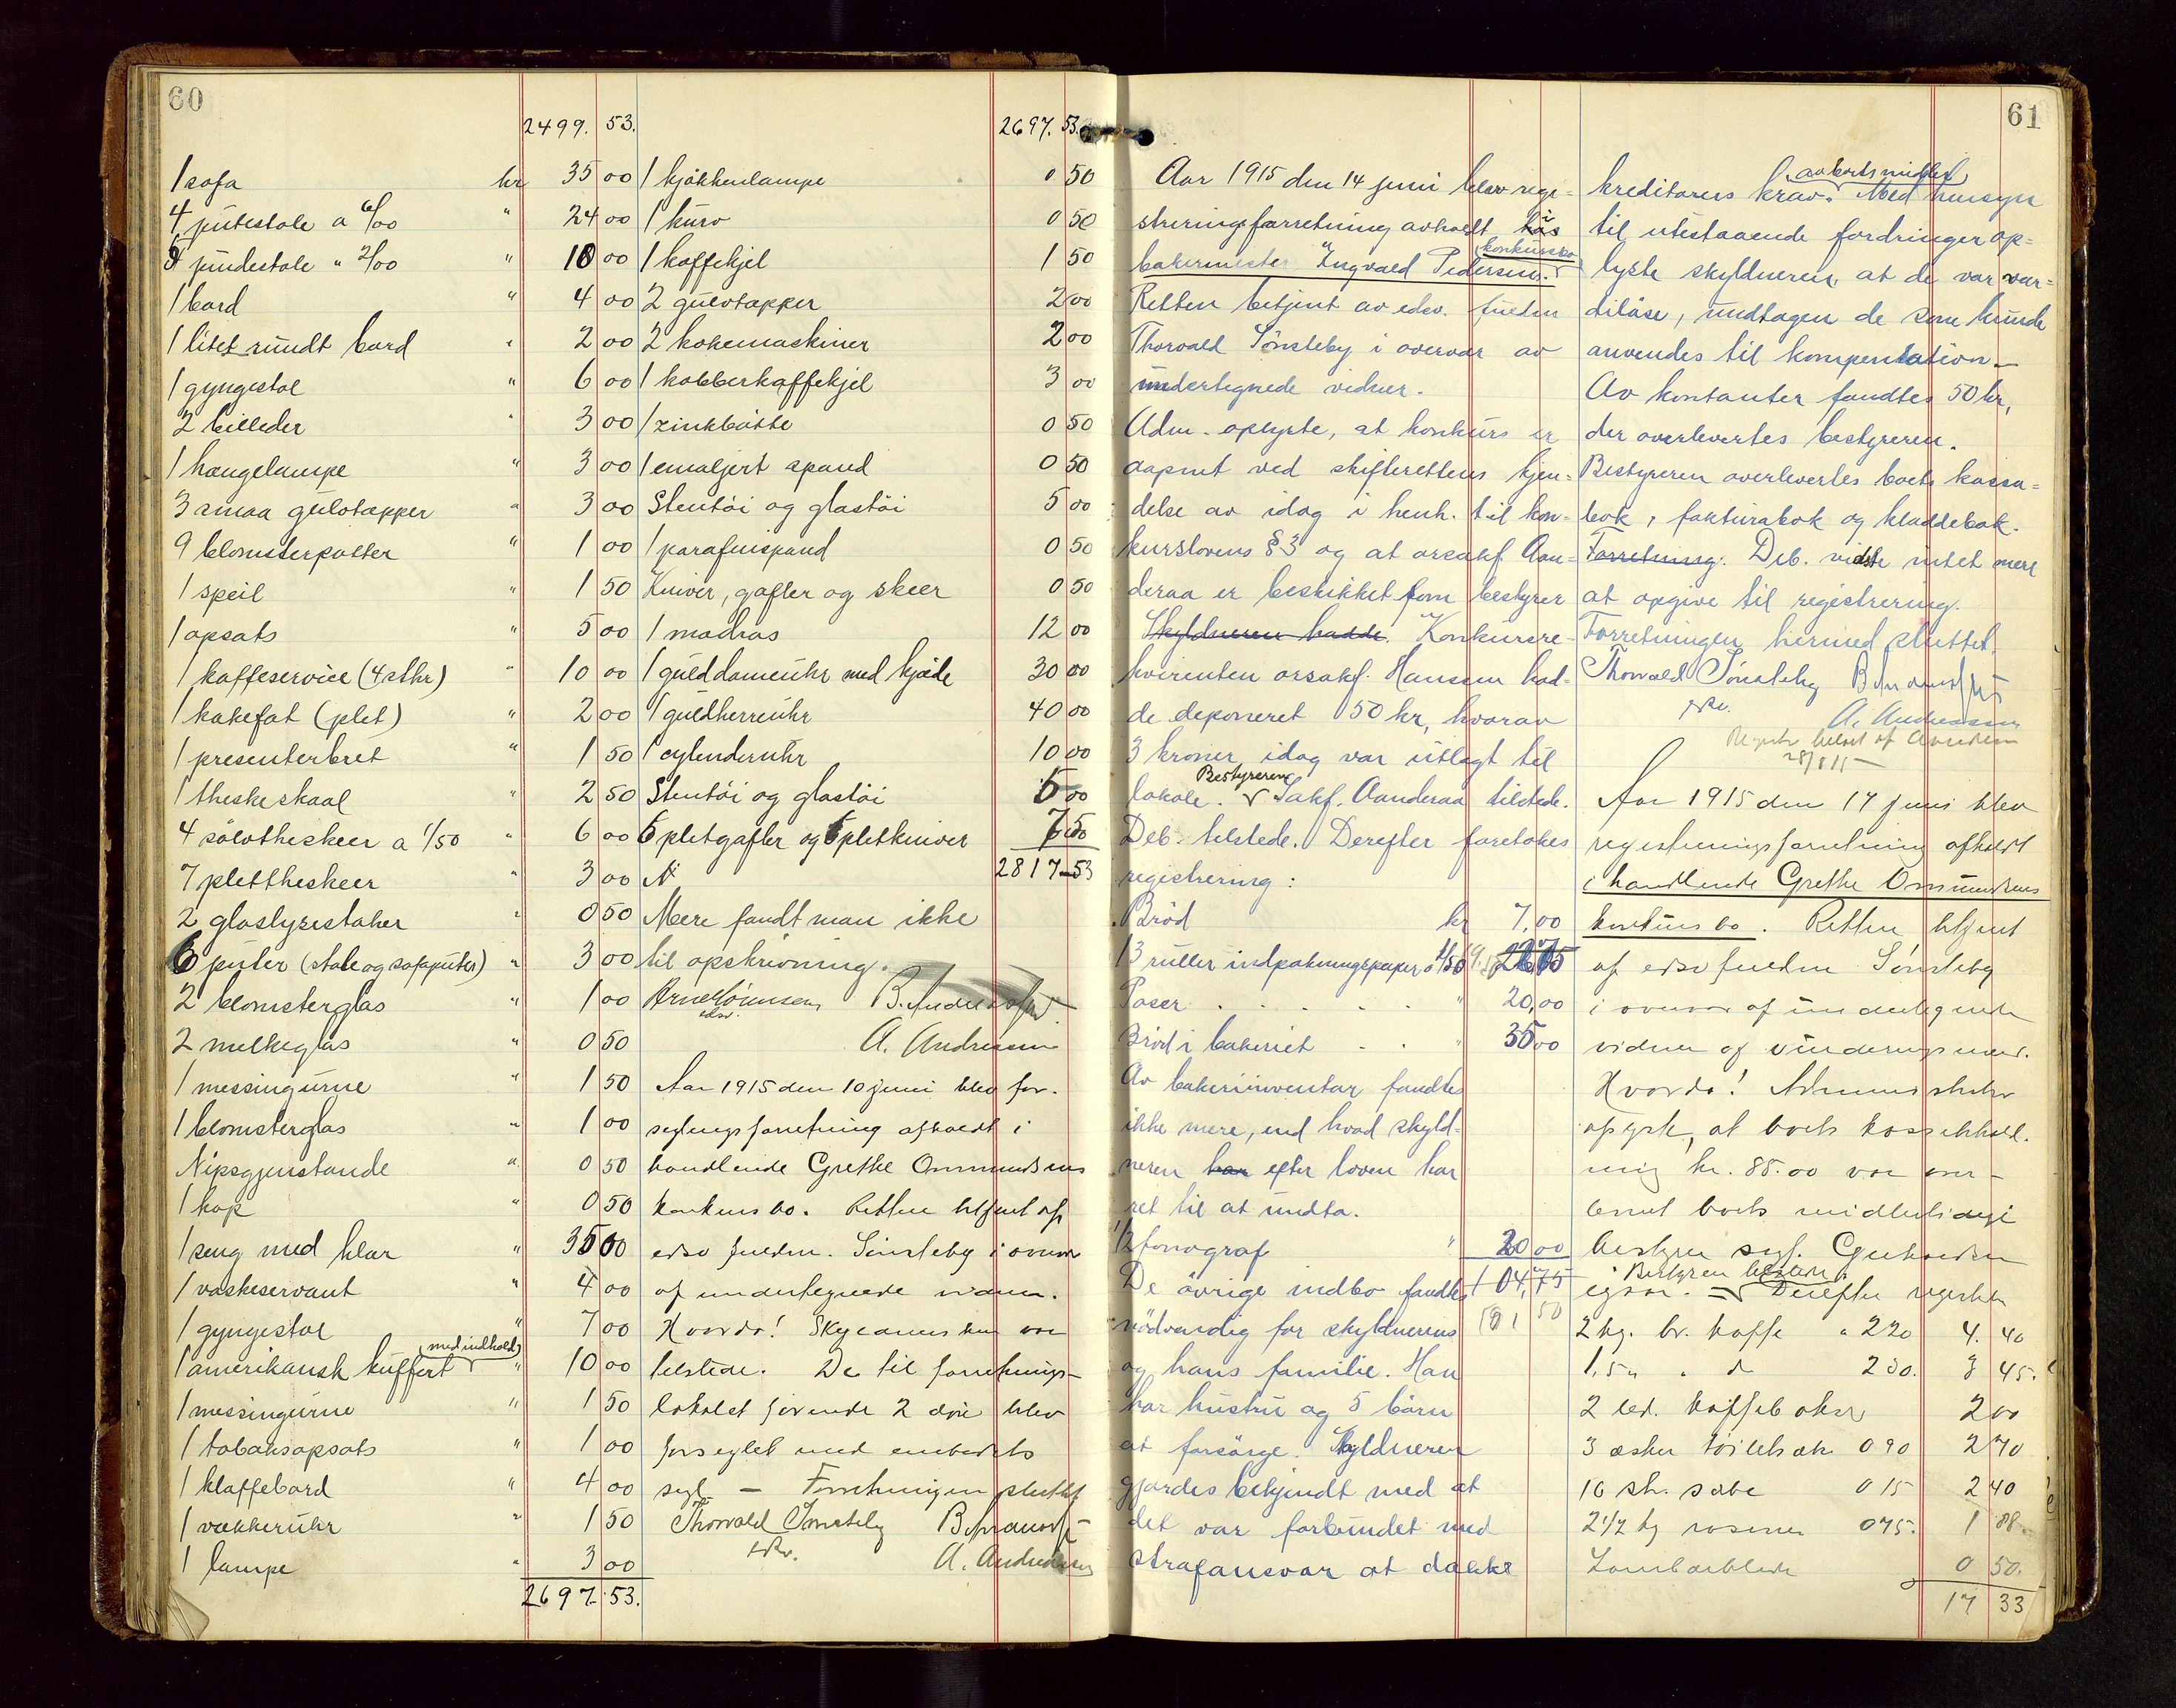 60
2499. 53.
1 sofa kr 35 00
4 pütestole a 6/00 " 24 00
5 pindestole " 2/00 " 10 00
1 bord " 4 00
1 litet rundt bord " 2 00
1 gyngestol " 6 00
2 billeder " 3 00
1 hængelampe " 3 00
3 smaa gulvtæpper " 3 00
9 blomsterpotter " 1 00
1 speil " 1 50
1 opsats " 5 00
1 kaffeservice (4 sthr) " 10 00
1 kakefat (plet) " 2 00
1 presenterbret " 1 50
1 theskeskaal " 2 50
4 sölvtheskeer a 1/50 " 6 00
7 plettheskeer " 3 00
2 glaslysestaker " 0 50
6 püter (stole og sofapüter) " 3 00
2 blomsterglas " 1 00
2 melkeglas " 0 50
1 messingürne " 1 50
1 blomsterglas " 1 00
Nipsgjenstande " 0 50
1 kop " 0 50
1 seng med klær " 35 00
1 vaskeservant " 4 00
1 gyngestol " 7 00
1 amerikansk küffert (med indhold) " 10 00
1 messingürne " 1 50
1 tobaksopsats " 1 00
1 klaffebord " 4 00
1 vækkerühr " 1 50
1 lampe " 3 00
2697. 53.
2697. 53.
1 kjökkenlampe 0 50
1 kurv 0 50
1 kaffekjel 1 50
2 gülvtæpper 2 00
2 kokemaskiner 2 00
1 kobberkaffekjel 3 00
1 zinkbötte 0 50
1 emaljert spand 0 50
Stentöi og glastöi 5 00
1 parafinspand 0 50
Kniver, gafler og skeer 0 50
1 madras 12 00
1 gülddameühr med kjæde 30 00
1 güldherreühr 40 00
1 cylenderühr 10 00
Stentöi og glastöi 5 00
6 pletgafler og 6 pletkniver 7 50
2817-53
Mere fandt man ikke
til opskrivning.
A. Andreassen
Aar 1915 den 10 juni blev for-
seglingsforretning afholdt i
handlende Grethe Ommundsens
konkursbo. Retten betjent af
edsv fuldm. Sönsteby i overvær
af undertegnede vidner.
Hvorda!
tilstede. De til forretnings-
lokalet förende 2 döre blev
forseglet med embedets
segl — Forretningen sluttet
Thorvald Sönsteby
A. Andreassen
61
Aar 1915 den 14 juni blev regi-
streringsforretning avholdt i
bakermester Ingvald Pedersens konkursbo.
Retten betjent av edsv. fuldm
Thorvald Sönsteby i overvær av
undertegnede vidner.
Adm. oplyste, at konkurs er
aapnet ved skifterettens kjen-
delse av idag i henh. til kon-
kurslovens § 3 og at orsakf. Aan-
deraa er beskikket som bestyrer
Skyldneren hadde. Konkursre-
kvirenten orsakf. Hanssen had-
de deponeret 50 kr, hvorav
3 kroner idag var utlagt til
lokale. Bestyreren Sakf. Aanderaa tilstede.
Deb. tilstede. Derefter foretokes
registrering:
Bröd kr 7,00
13 ruller indpakningspaper
Poser " 20,00
Bröd i bakeriet " 35 00
Av bakeriinventar fandtes
ikke mere, end hvad skyld-
neren har efter loven har
ret til at undta.
1/2 fonograf " 20 00
De övrige indbo fandtes 104,75
nödvendig for skyldneren
og hans familie. Han
har hüstrü og 5 börn
at forsörge. Skyldneren
gjordes bekjendt med at
det var forbundet med
strafansvar at dække
kreditorers krav av boets midler. Med hensyn
til utestaaende fordringer op-
lyste skyldneren, at de var vær-
dilöse, undtagen de som kunde
anvendes til kompensation.-
Av kontanter fandtes 50 kr,
der overlevertes bestyreren.
Bestyreren overlevertes boets kassa-
bok, fakturabok og kladdebok.
Forretning. Deb. vidste intet mere
at opgive til registrering.
Forretningen hermed sluttet.
Thorvald Sönsteby
edsv.
A. Andreassen
28/8 15
Aar 1915 den 14 juni blev
registreringsforretning afholdt
i handlende Grethe Ommundsens
konkursbo. Retten betjent
af edsv fuldm Sönsteby
i overvær af undertegnede
vidner og vurderingsmænd.
Hvorda! Administrator
oplyste, at boets kassebehold-
ning kr. 85.00 var over-
leveret boets midlertidige
bestyrer
Bestyreren
Derefter registrer
2 kg. br. kaffe " 2 20 4. 40
1,5 " " d 2 30. 3 45.
2 2 00
3 æsker 0 90 2 70
16 st. sæbe 0 15 2 40
2 1/2 kg rosiner 0 75. 1 88.
0 50.
17 33